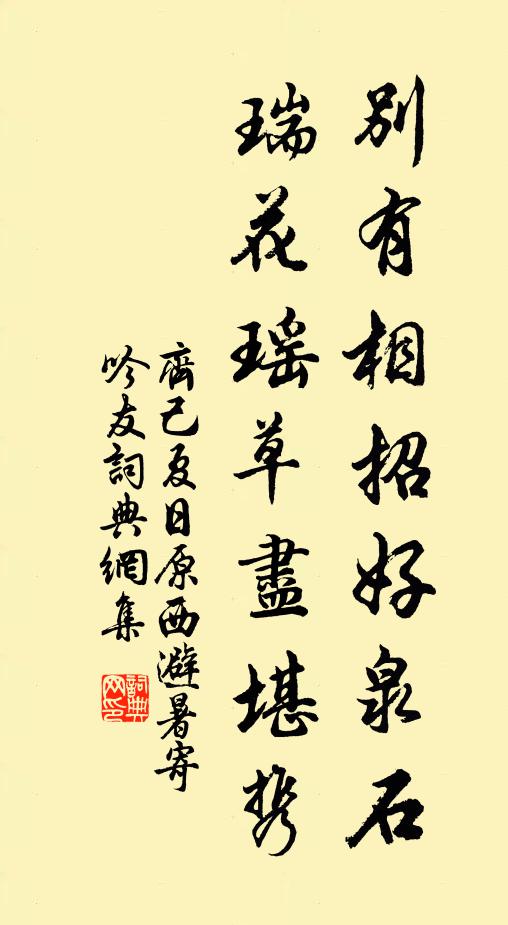 別有相招好泉石
瑞花瑶草盡堪携
齊己夏日原西避暑寄
吟友詞典網集
詞典
网印